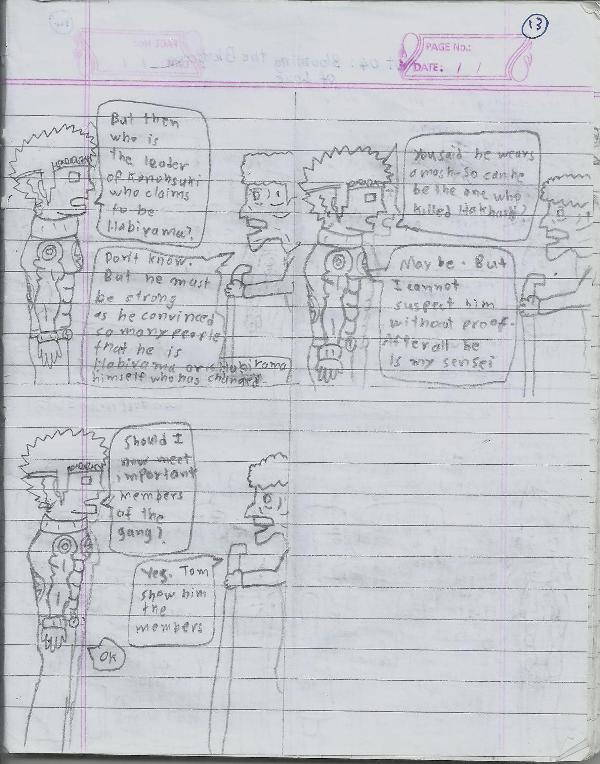 13
PAGE No.:
DATE. / /
But then
who is
the leader
of Konohsuki
who claims
to be
Habirama?
Don't know.
But he must
be strong
as he convinced
so many people
that he is
Habirama or is Habirama
himself who has changed
You said he wears
a mask. So can he
be the one who
killed Hakhashi?
May be. But
I cannot
suspect him
without proof.
After all he
is my sensei
Should I
now meet
important
members
of the
gang?
Yes. Tom
show him
the
members
OK